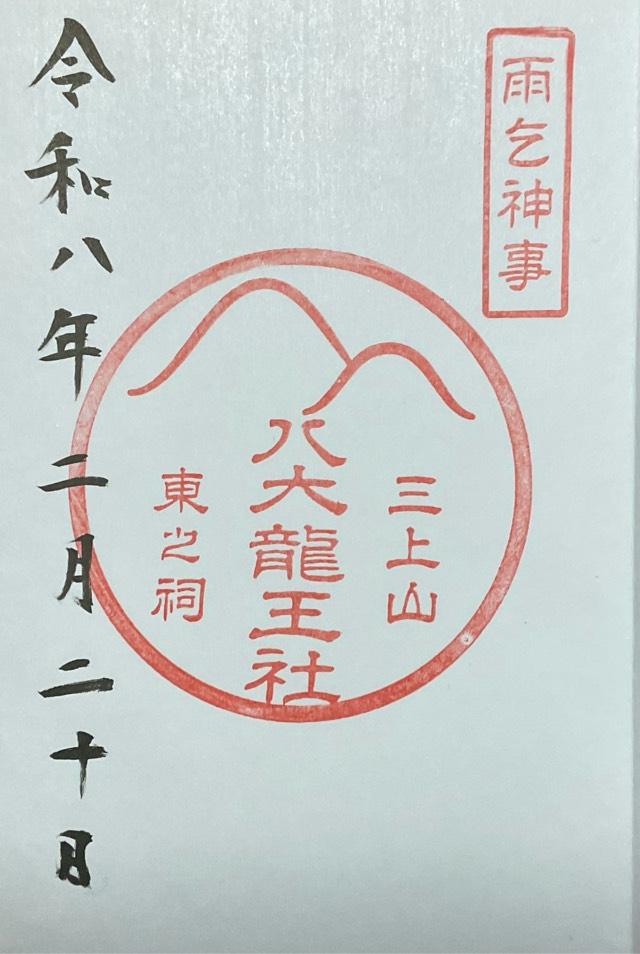 雨乞神事
三上山
八大龍王社
東之祠
令和八年二月二十日